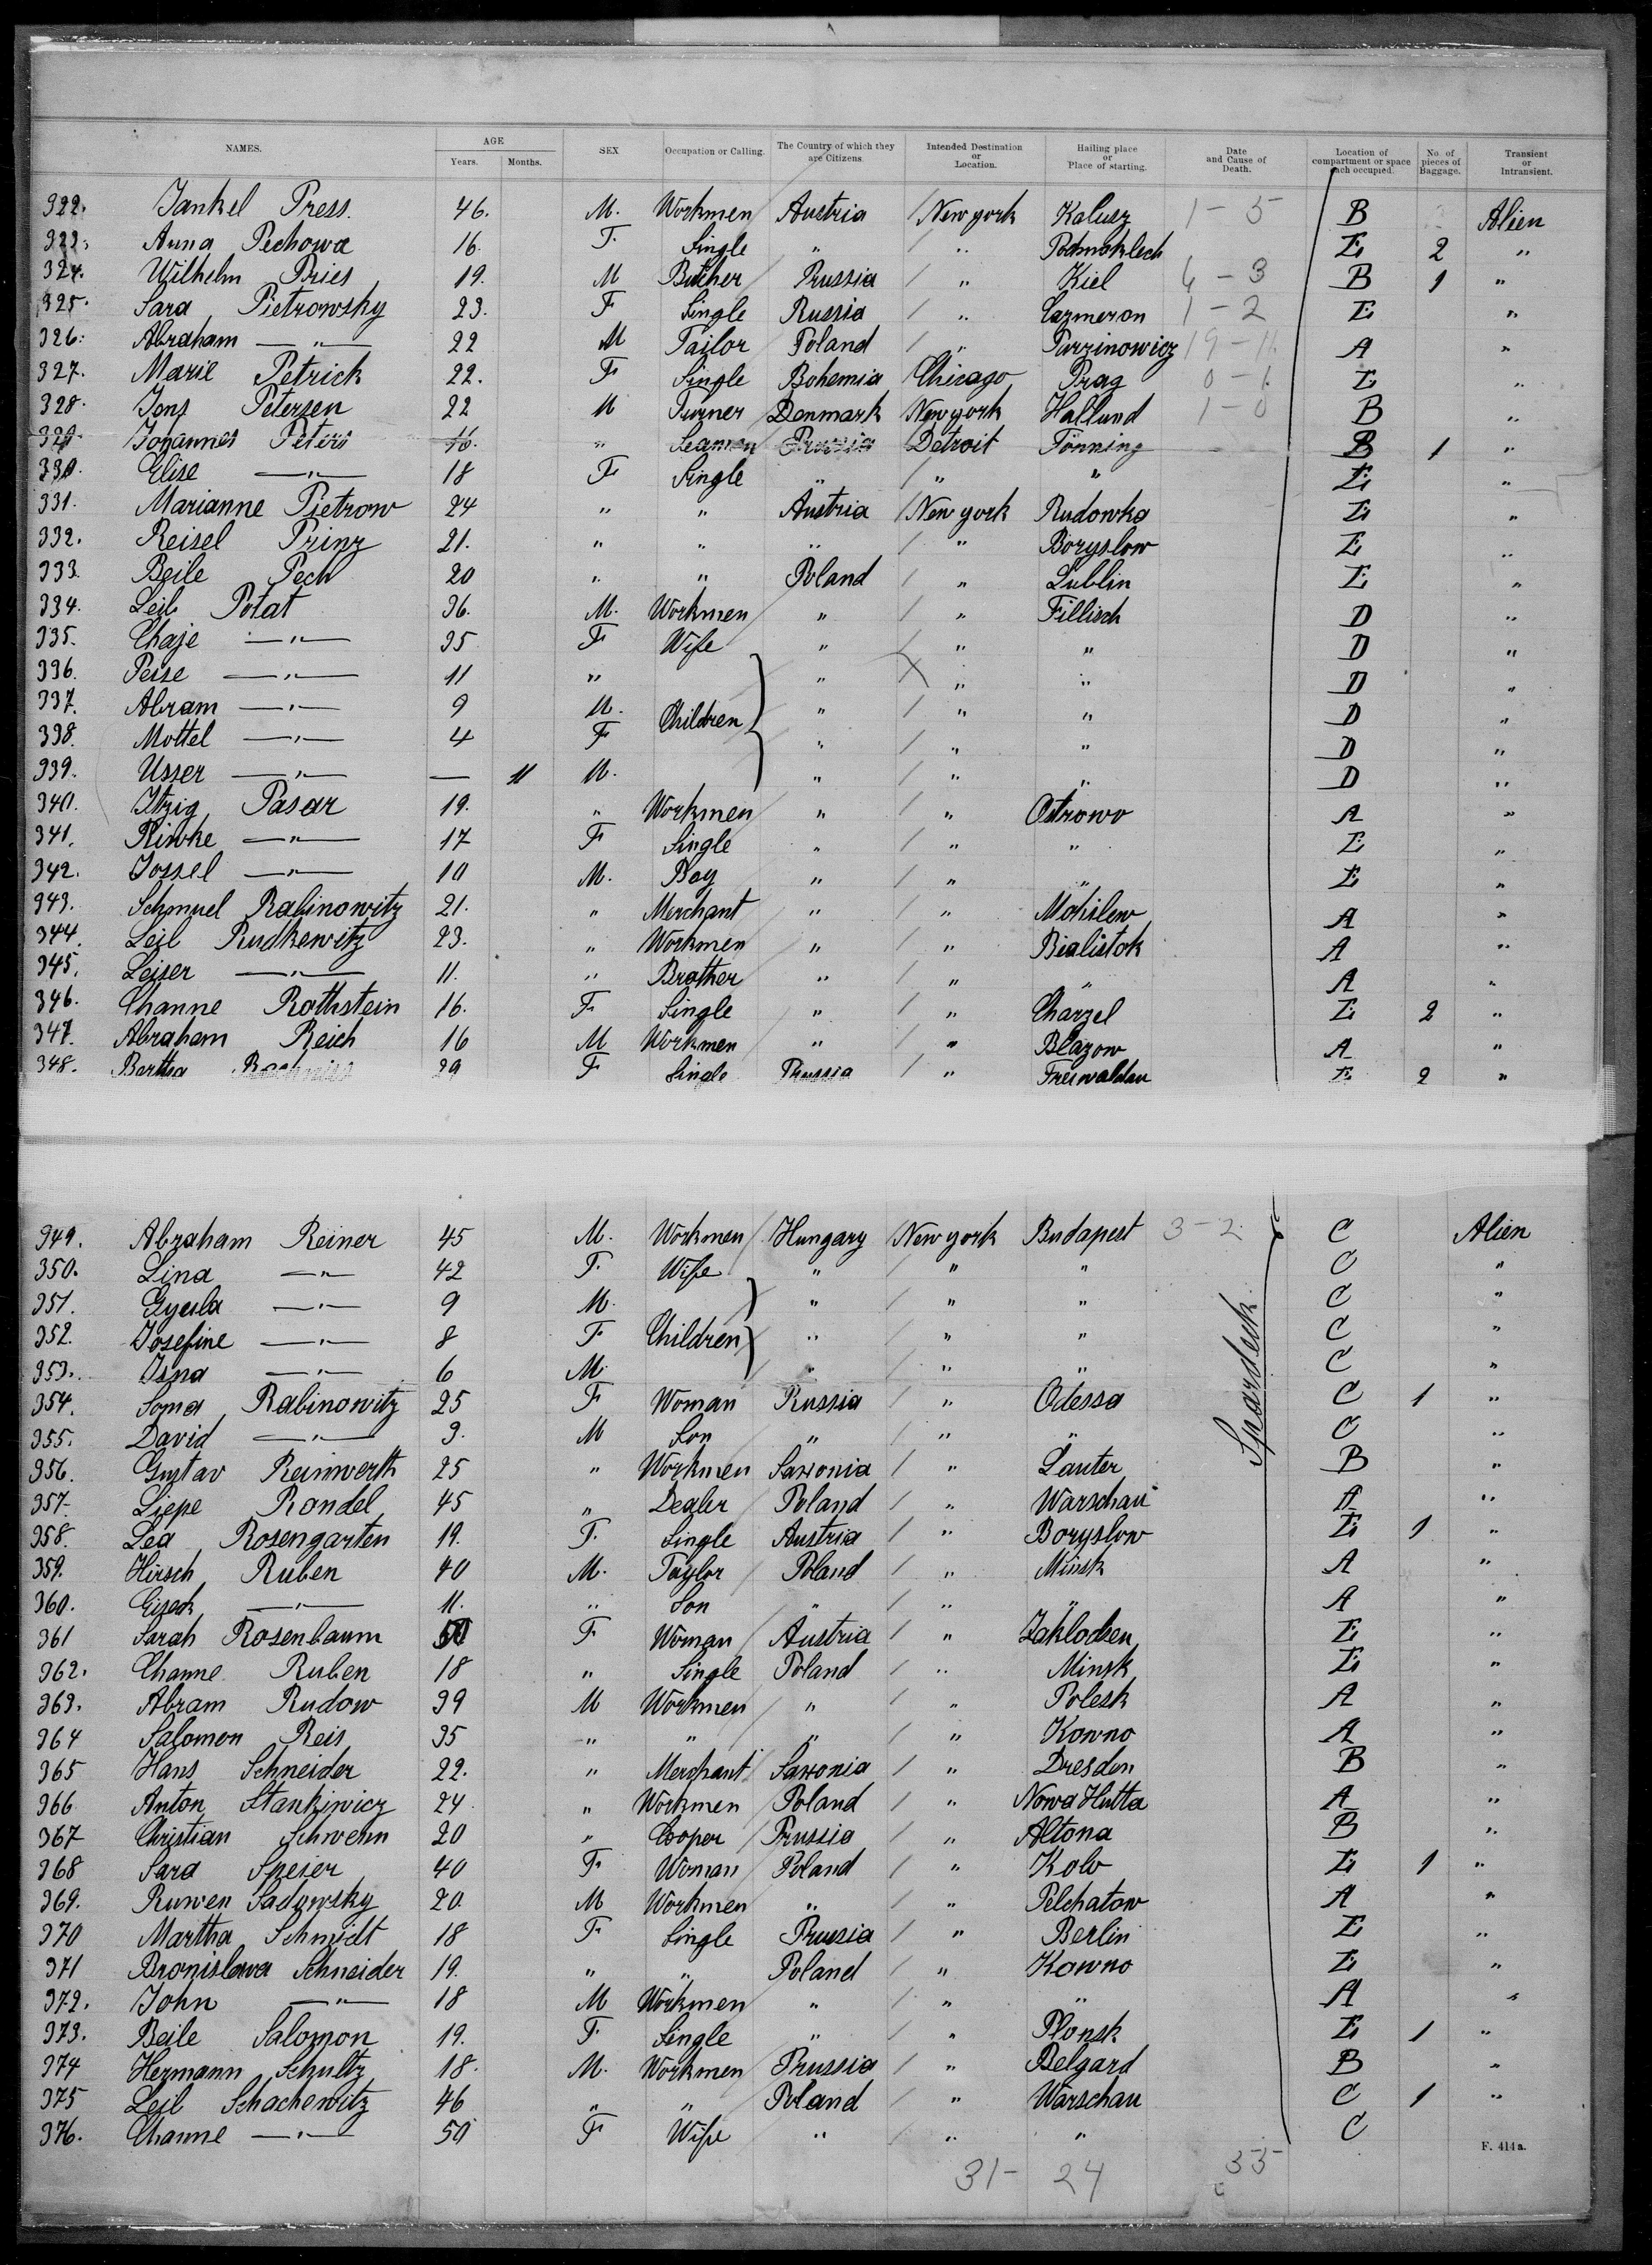 NAMES. AGE Years. Months. SEX Occupation or Calling. The Country of which they are Citizens. Intended Destination or Location. Hailing place or Place of starting. Date and Cause of Death. Location of compartment or space each occupied. No. of pieces of Baggage. Transient or Intransient.
322. Jankel Press. 46. M. Workmen Austria New york Kalusz 1-5 B Alien
323. Anna Pechowa 16. F. Single " / " Podmoklech E 2 "
324. Wilhelm Pries 19. M Butcher Prussia " Kiel 4-3 B 1 "
325. Sara Pietrowsky 23. F Single Russia / " Cazmeron 1-2 E "
326. Abraham —"— 22 M Tailor Poland / " Purzinowicz 19-11 A "
327. Marie Petrick 22. F Single Bohemia Chicago Prag 0-1 E "
328. Jens Petersen 22 M Turner Denmark New york Hallund 1-0 B "
329. Johannes Peters 16. " Seaman Prussia Detroit Tönning B 1 "
330. Elise —"— 18 F Single " / " " E "
331. Marianne Pietrow 24 " " Austria / New york Rudowka E "
332. Reisel Prinz 21. " " " / " Boryslow E "
333. Beile Pech 20 " " Poland / " Lublin E "
334. Leib Potat 36. M. Workmen " / " Fillisch D "
335. Chaje —"— 35 F Wife " / " " D "
336. Pesse —"— 11 " " " " D "
337. Abram —"— 9 M. Children " / " " D "
338. Mottel —"— 4 F " / " " D "
339. Usser —"— — 11 M. " / " " D "
340. Itzig Pasar 19. " Workmen " " Ostrowo A "
341. Riwke —"— 17 F Single " / " " E "
342. Jossel —"— 10 M. Boy " / " " E "
343. Schmuel Rabinowitz 21. " Merchant " / " Mohilew A "
344. Leib Rudkewitz 23. " Workmen " / " Bialistok A "
345. Leiser —"— 11. " Brother " / " " A "
346. Channe Rothstein 16. F Single " / " Charzel E 2 "
347. Abraham Reich 16 M Workmen " / " Blazow A "
348. Bertha 29 F Single Prussia / " Freiwaldau E 2 "
349. Abraham Reiner 45 M. Workmen Hungary New york Budapest 3-2 C Alien
350. Lina —"— 42 F. Wife " / " " C "
351. Gyula —"— 9 M. " / " " C "
352. Josefine —"— 8 F Children " / " " C "
353. Isna —"— 6 M. " / " " C "
Spardeck
354. Soma Rabinowitz 25 F Woman Russia / " Odessa C 1 "
355. David —"— 3. M Son " / " " C "
356. Gustav Reinwerth 25 " Workmen Saxonia / " Lauter B "
357. Liepe Rondel 45 " Dealer Poland / " Warschau A "
358. Lea Rosengarten 19. F. Single Austria / " Boryslow E 1 "
359. Hirsch Ruben 40 M. Taylor Poland / " Minsk A "
360. Eisek —"— 11. " Son " / " " A "
361 Sarah Rosenbaum 50 F Woman Austria / " Zaklodsen E "
362. Channe Ruben 18 " Single Poland / " Minsk E "
363. Abram Rudow 39 M Workmen " / " Polesk A "
364 Salomon Reis 35 " " " / " Kowno A "
365 Hans Schneider 22. " Merchant Saxonia / " Dresden B "
366 Anton Stankiwicz 24 " Workmen Poland / " Nowa Hutta A "
367 Christian Schwenn 20 " Cooper Prussia / " Altona B "
368 Sara Speier 40 F Woman Poland / " Kolo E 1 "
369. Ruwen Sadowsky 20. M Workmen " / " Pelchatow A "
370 Martha Schmidt 18 F Single Prussia / " Berlin E "
371 Bronislawa Schneider 19. " " Poland / " Kowno E "
372. John —"— 18 M Workmen " / " " A "
373. Beile Salomon 19. F Single " / " Plonsk E 1 "
374 Hermann Schultz 18. M. Workmen Prussia / " Belgard B "
375 Leib Schachewitz 46 " " Poland " Warschau C 1 "
376. Channe —"— 50 F Wife " " " C
F. 414a.
31- 24 33-